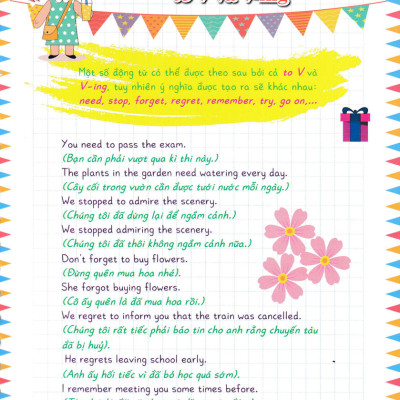 Một số động từ có thể được theo sau bởi cả to V và
V-ing, tuy nhiên ý nghĩa được tạo ra sẽ khác nhau:
need, stop, forget, regret, remember, try, go on,...
You need to pass the exam.
(Bạn cần phải vượt qua kì thi này.)
The plants in the garden need watering every day.
(Cây cối trong vườn cần được tưới nước mỗi ngày.)
We stopped to admire the scenery.
(Chúng tôi đã dừng lại để ngắm cảnh.)
We stopped admiring the scenery.
(Chúng tôi đã thôi không ngắm cảnh nữa.)
Don't forget to buy flowers.
(Đừng quên mua hoa nhé).
She forgot buying flowers.
(Cô ấy quên là đã mua hoa rồi.)
We regret to inform you that the train was cancelled.
(Chúng tôi rất tiếc phải báo tin cho anh rằng chuyến tàu
đã bị huỷ).
He regrets leaving school early.
(Anh ấy hối tiếc vì đã bỏ học quá sớm).
I remember meeting you some times before.